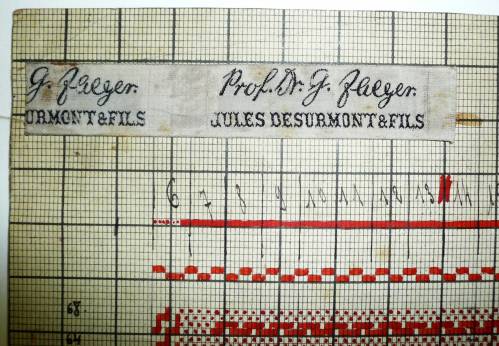 G. Jaeger. Prof. Dr. G. Jaeger.
URMONT & FILS JULES DESURMONT & FILS
6 7 8 9 10 11 12 13 14
68
64